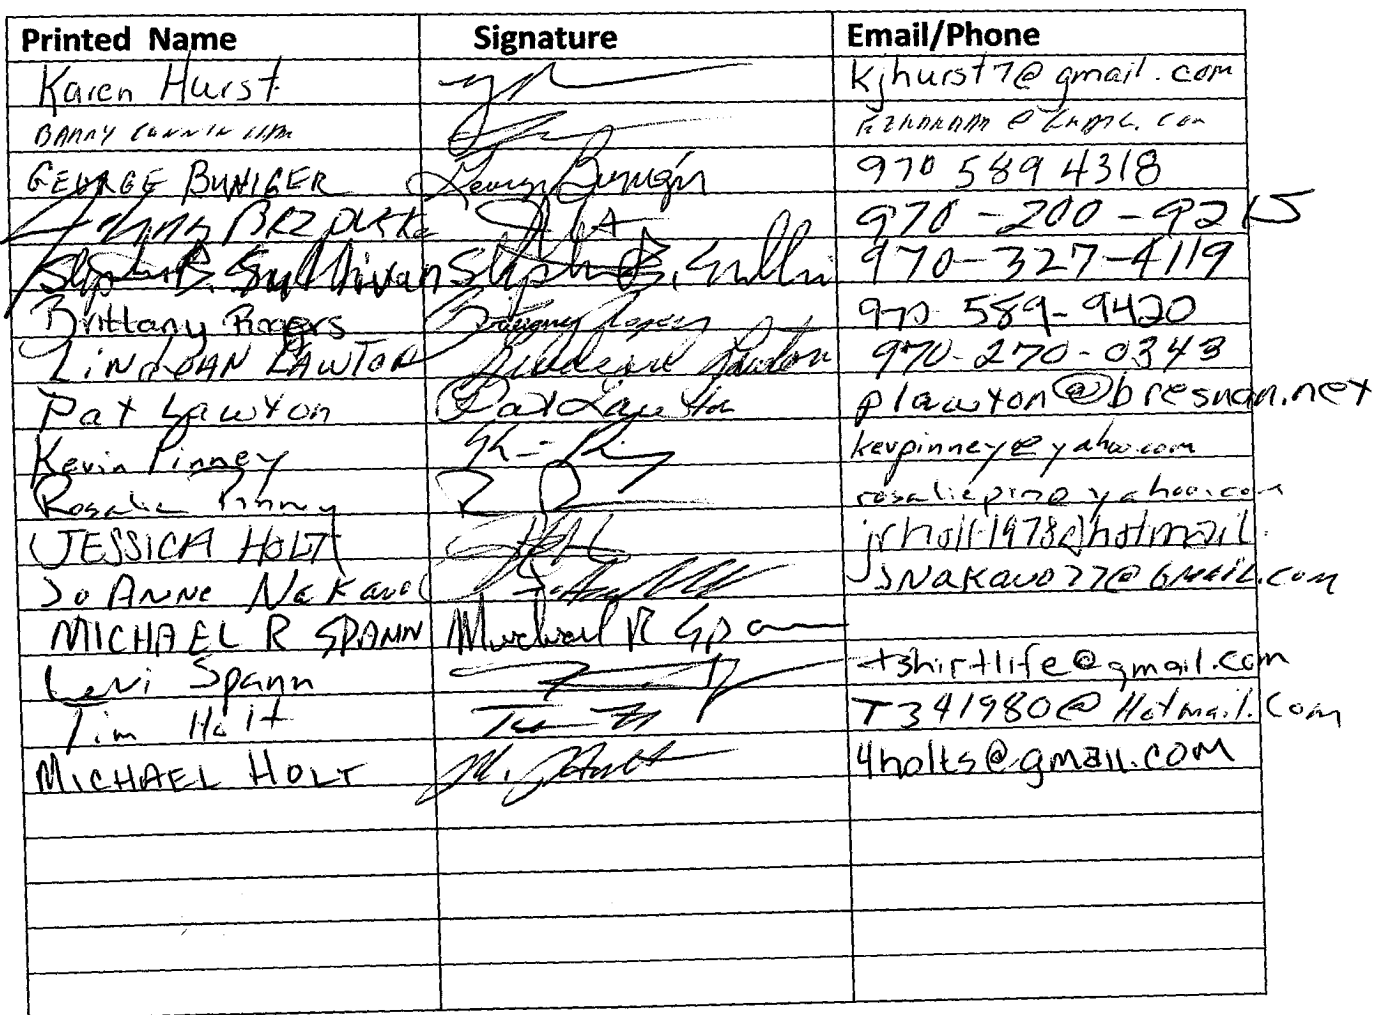 Printed Name Signature Email/Phone
Karen Hurst kjhurst7@gmail.com
BARRY
GEORGE BUNIGER 970 589 4318
970-200-9215
Stephen B. Sullivan Stephen B. Sulli 970-327-4119
Brittany Rogers 970-589-9420
LINDEAN LAWTON Lindean Lawton 970-270-0343
Pat Lawton Pat Lawton plawton@bresnan.net
Kevin Pinney kevpinney@yahoo.com
Rosalie Pinney rosaliepin@yahoo.com
JESSICA HOLT
JoAnne Nakano JSNakano77@Gmail.com
MICHAEL R SPANN Michael R Spann
Levi Spann tshirtlife@gmail.com
Tim Holt T341980@Hotmail.com
MICHAEL HOLT M. Holt 4holts@gmail.com